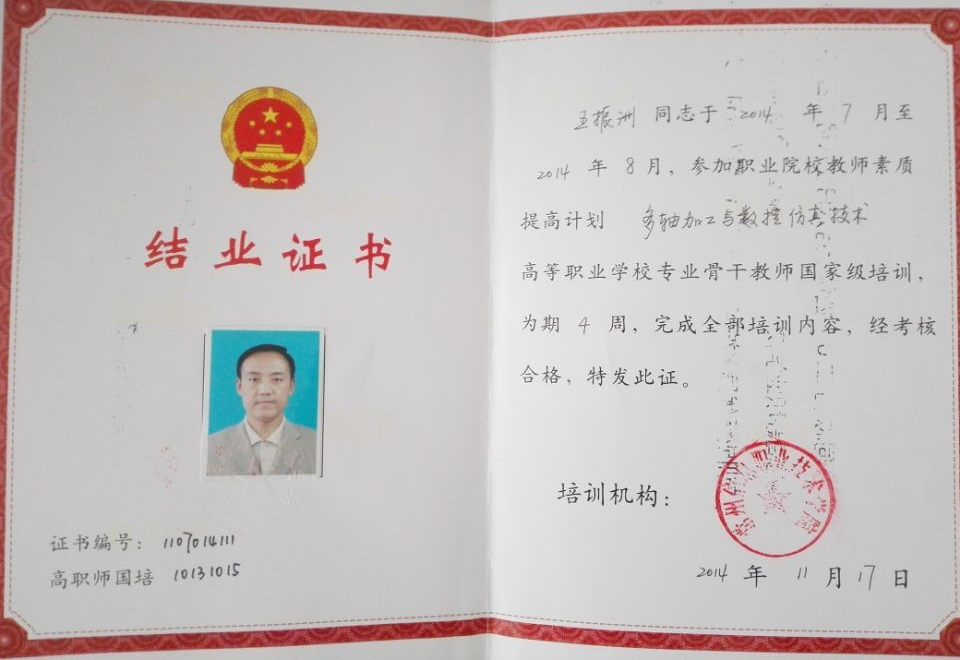 结业证书
证书编号：1107014111
高职师国培 10131015
王振洲 同志于 2014 年 7 月至
2014 年 8 月，参加职业院校教师素质
提高计划 多轴加工与数控仿真技术
高等职业学校专业骨干教师国家级培训，
为期 4 周，完成全部培训内容，经考核
合格，特发此证。
培训机构：
2014 年 11 月 17 日